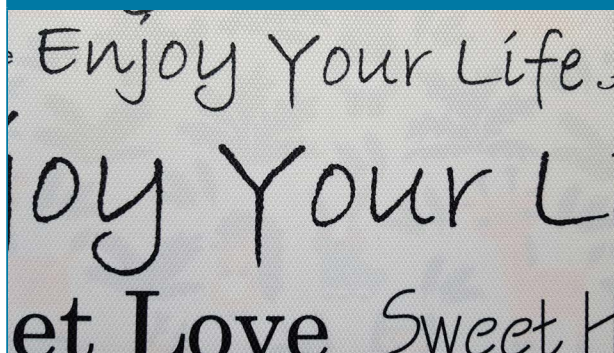 Enjoy Your Life
joy Your L
et Love Sweet H